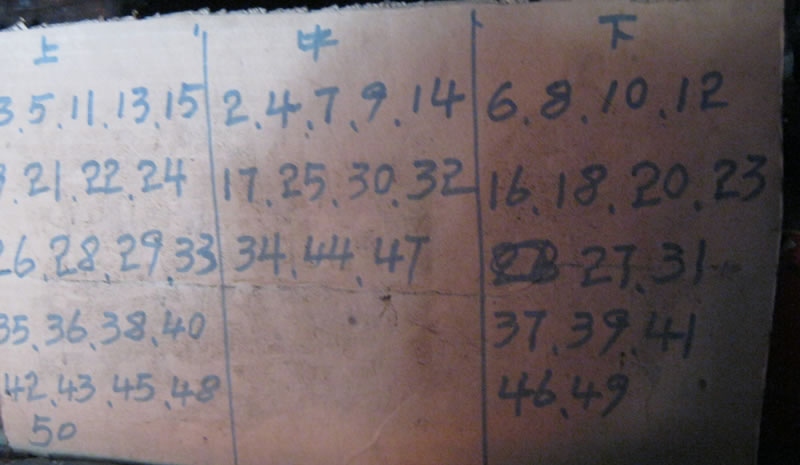 上
3.5.11.13.15
.21.22.24
26.28.29.33
35.36.38.40
42.43.45.48
50
中
2.4.7.9.14
17.25.30.32
34.44.47
下
6.8.10.12
16.18.20.23
27.31
37.39.41
46.49